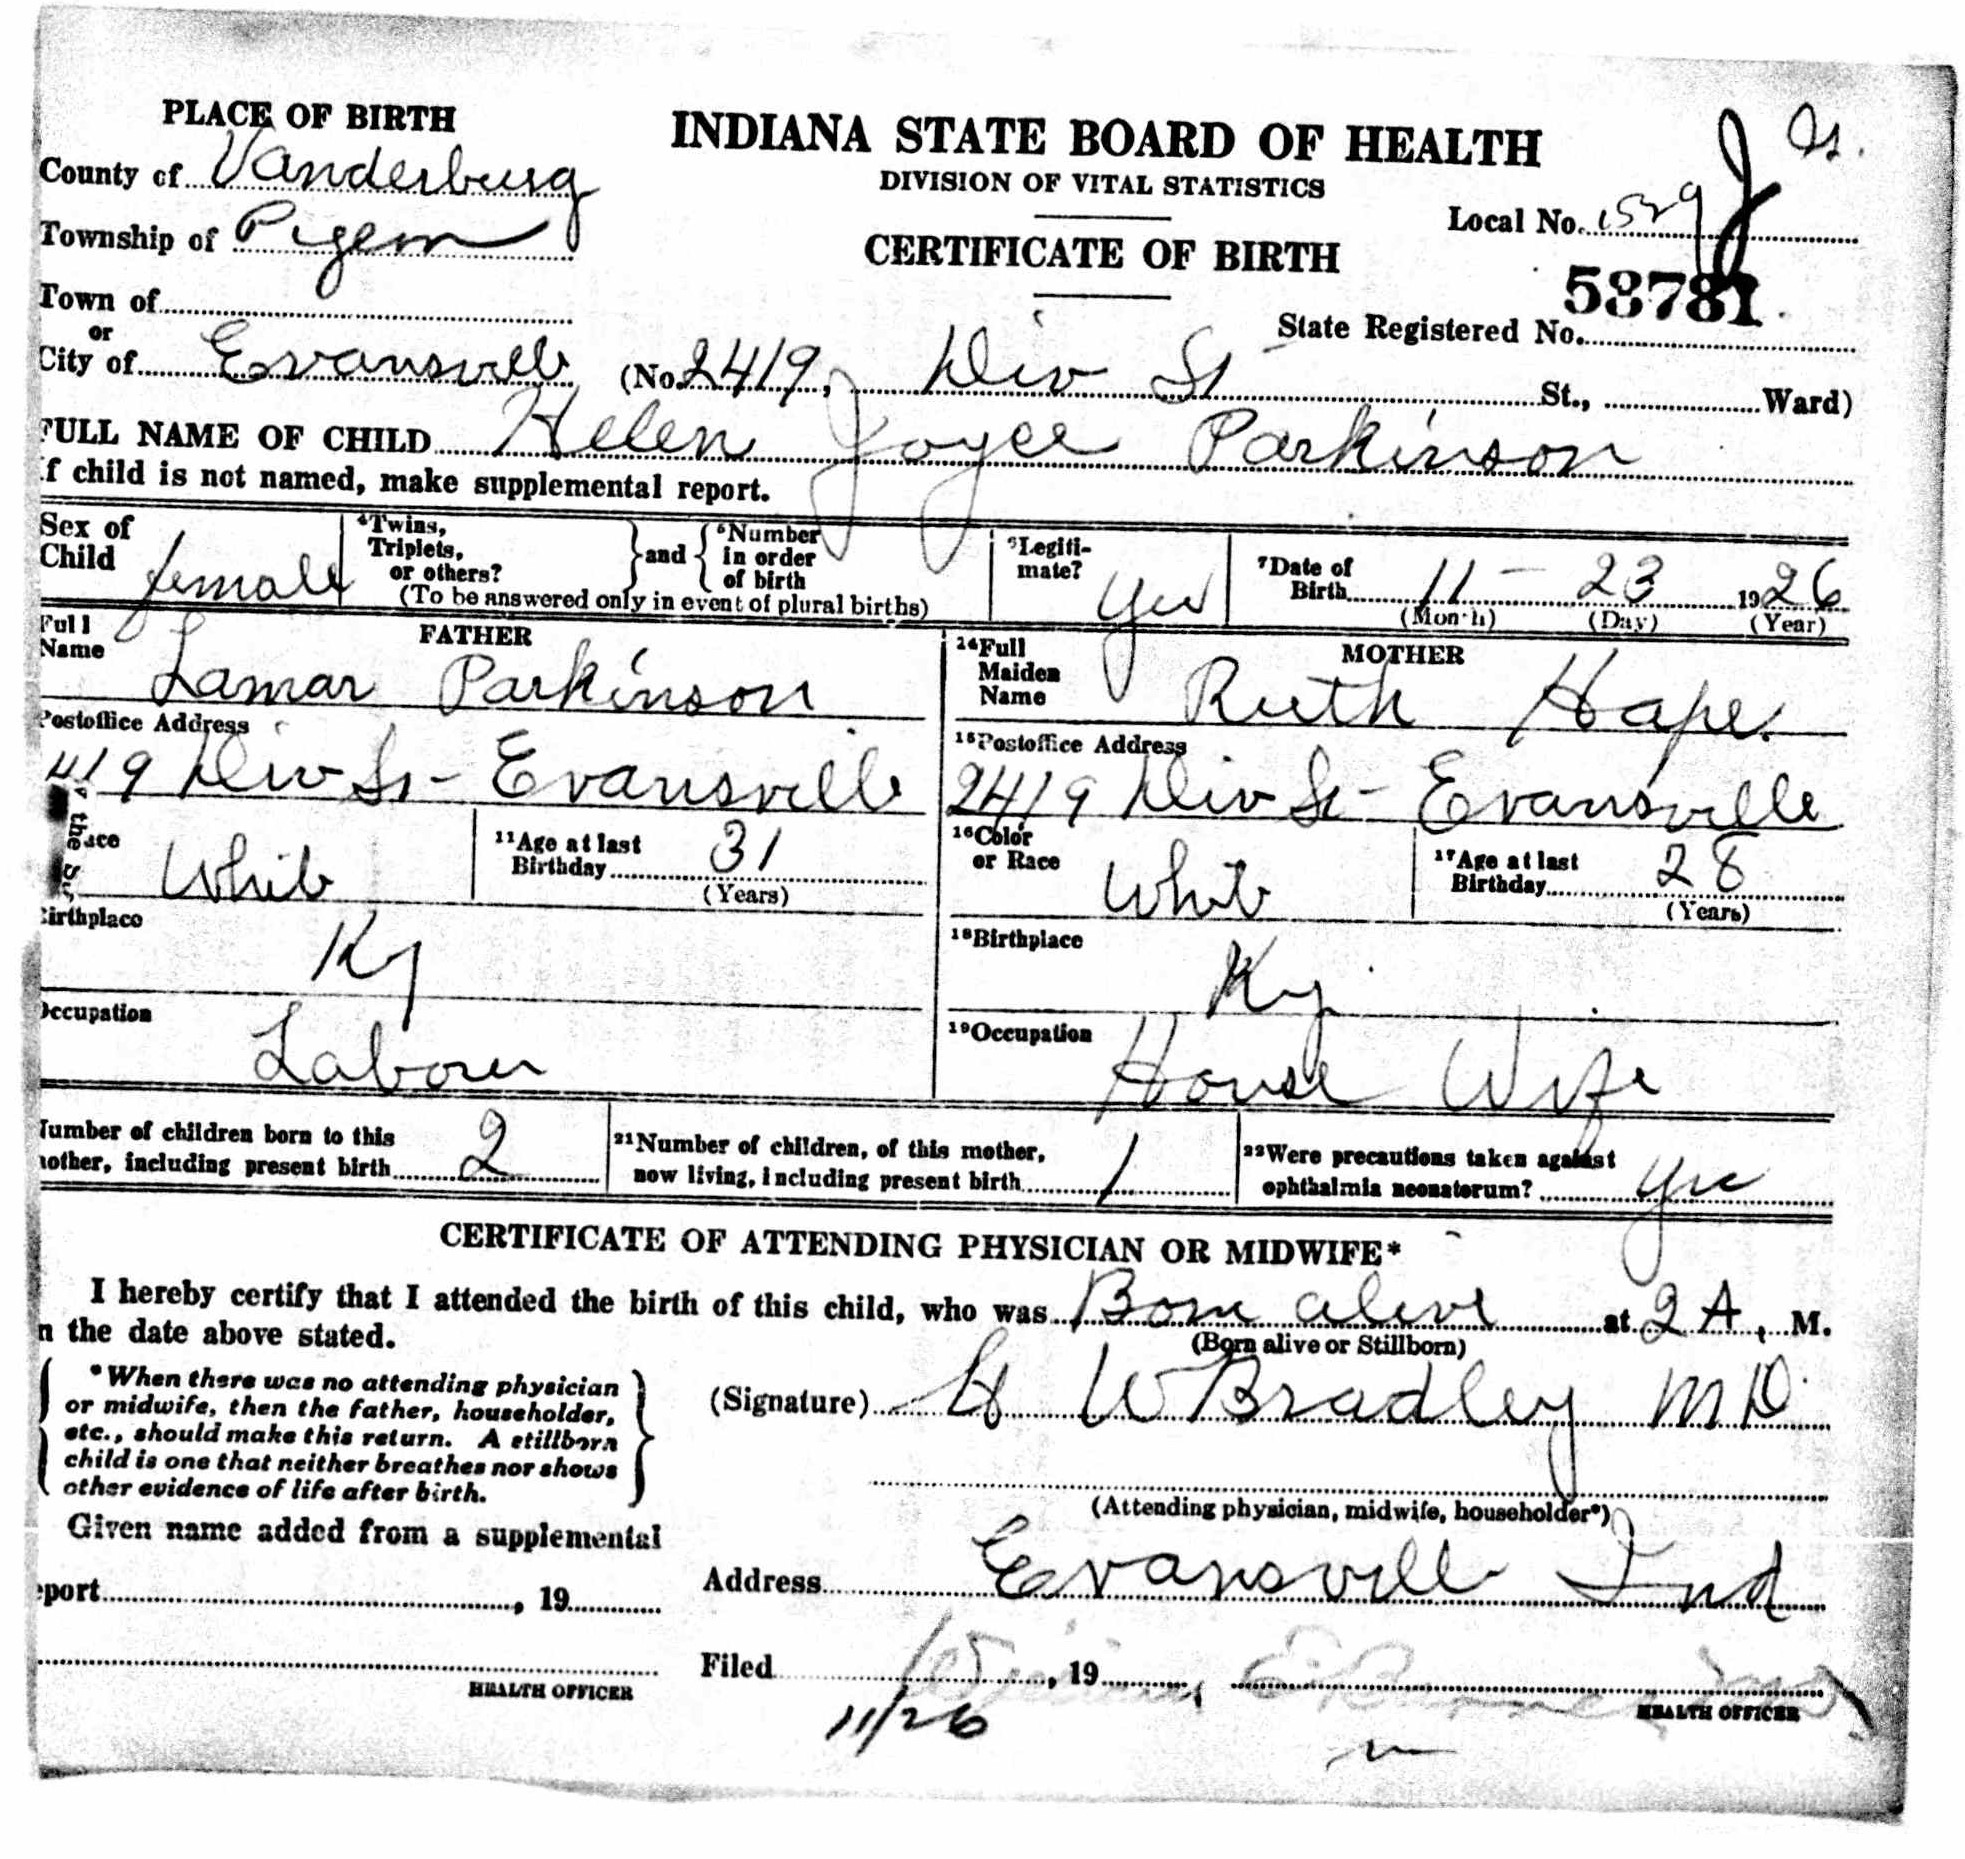 PLACE OF BIRTH
County of Vanderburg
Township of Pigeon
Town of
or
City of Evansville (No. 2419, Div St St., Ward)
INDIANA STATE BOARD OF HEALTH
DIVISION OF VITAL STATISTICS
CERTIFICATE OF BIRTH
Local No. 1529
53781
State Registered No.
FULL NAME OF CHILD Helen Joyce Parkinson
If child is not named, make supplemental report.
Sex of Child female
4 Twins, Triplets, or others? and 5 Number in order of birth
(To be answered only in event of plural births)
6 Legitimate? Yes
7 Date of Birth 11 - 23 1926
(Month) (Day) (Year)
FATHER
Full Name Lamar Parkinson
Postoffice Address
419 Div St - Evansville
White
11 Age at last Birthday 31
(Years)
Birthplace
Ky
Occupation
Laborer
MOTHER
14 Full Maiden Name Ruth Hape.
15 Postoffice Address
2419 Div St - Evansville
16 Color or Race White
17 Age at last Birthday 28
(Years)
18 Birthplace
Ky
19 Occupation
House Wife
Number of children born to this mother, including present birth 2
21 Number of children, of this mother, now living, including present birth 1
22 Were precautions taken against ophthalmia neonatorum? yes
CERTIFICATE OF ATTENDING PHYSICIAN OR MIDWIFE*
I hereby certify that I attended the birth of this child, who was Born alive at 2 A, M.
(Born alive or Stillborn)
n the date above stated.
*When there was no attending physician
or midwife, then the father, householder,
etc., should make this return. A stillborn
child is one that neither breathes nor shows
other evidence of life after birth.
(Signature) H W Bradley M D
(Attending physician, midwife, householder*)
Given name added from a supplemental
eport , 19
HEALTH OFFICER
Address Evansville Ind
Filed , 19
11/26
HEALTH OFFICER